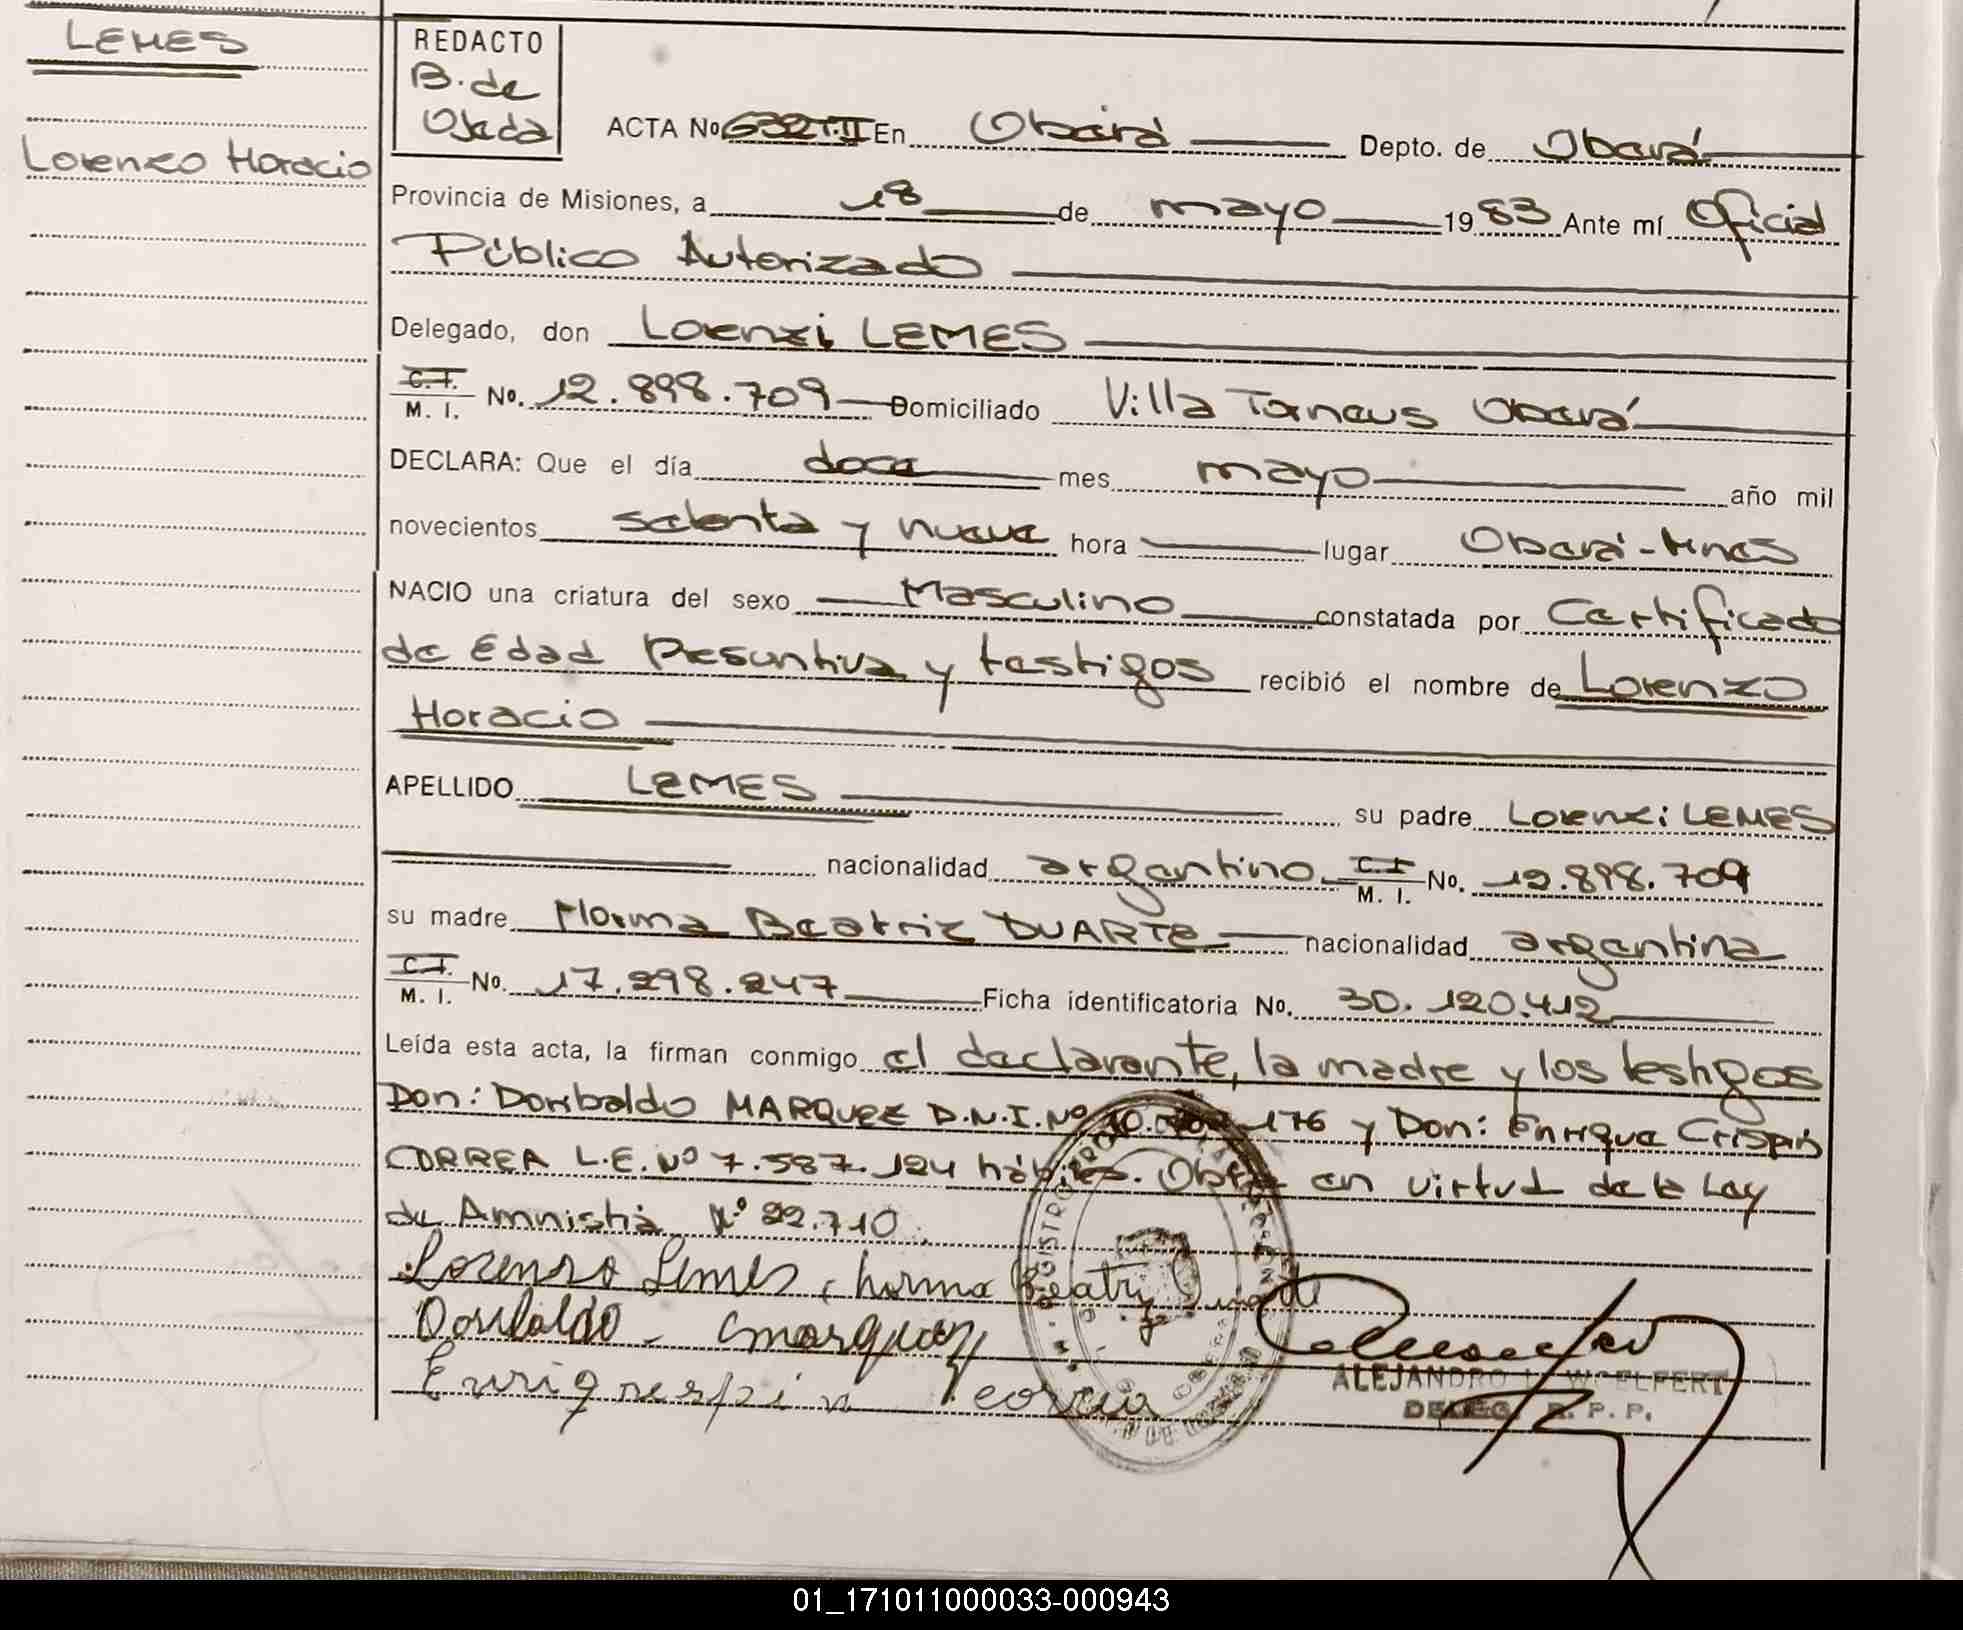 LEMES
Lorenzo Horacio
REDACTO
B. de
Ojeda
ACTA Nº 632 T.II En Oberá Depto. de Oberá
Provincia de Misiones, a 18 de mayo 1983 Ante mí Oficial
Público Autorizado
Delegado, don Lorenzi LEMES
C.I. M. I. No. 12.898.709 Domiciliado Villa Torneus Oberá
DECLARA: Que el día doce mes mayo año mil
novecientos setenta y nueve hora lugar Oberá - Mnes
NACIO una criatura del sexo Masculino constatada por Certificado
de Edad Presuntiva y testigos recibió el nombre de Lorenzo
Horacio
APELLIDO LEMES su padre Lorenzi LEMES
nacionalidad argentino C.I M. I. No. 12.898.709
su madre Norma Beatriz DUARTE nacionalidad argentina
C.I. M. I. No. 17.298.247 Ficha identificatoria No. 30.120.412
Leída esta acta, la firman conmigo el declarante, la madre y los testigos
Don: Doribaldo MARQUEZ D.N.I. Nº 10. 176 y Don: Enrique Crispin
CORREA L.E. Nº 7.587.124 hábiles. Obtta en virtud de la Ley
de Amnistia Nº 22.710.
Lorenso Lemes, horma Beatriz Duarte
Doribaldo - marquez
Enriq respin correa
ALEJANDRO WOELFERT
DELEG. R. P. P.
01_171011000033-000943